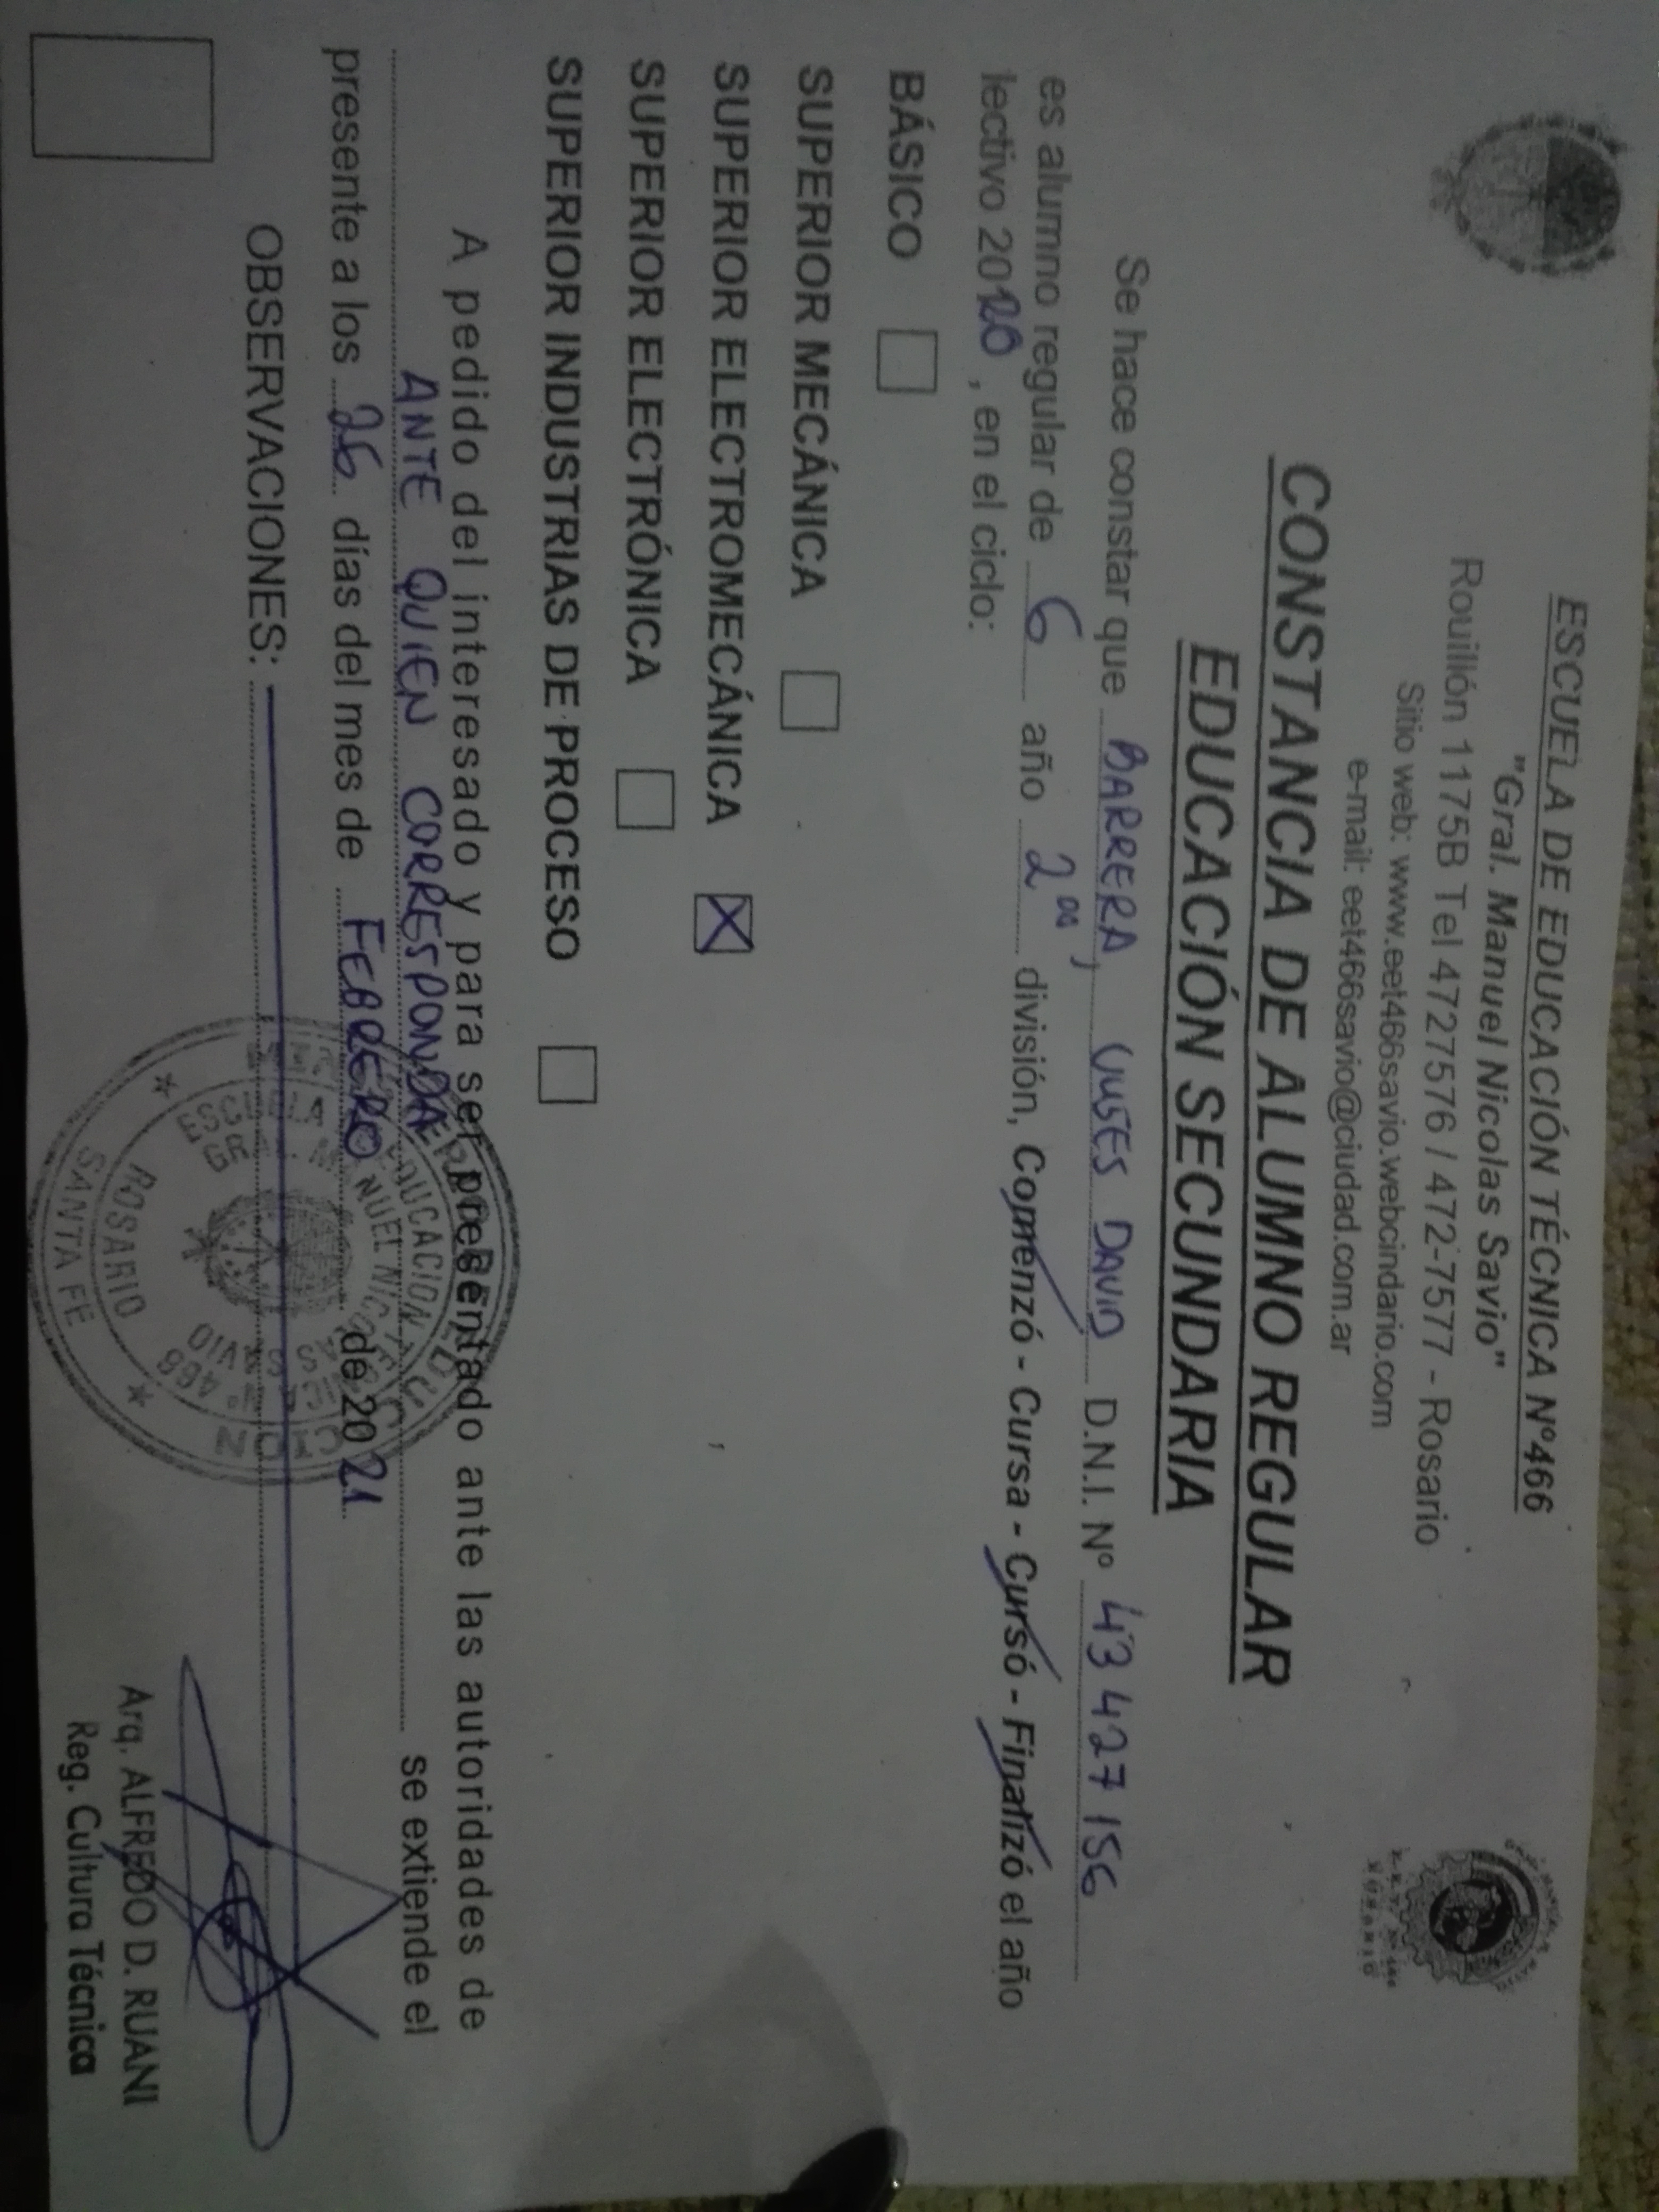 ESCUELA DE EDUCACIÓN TÉCNICA Nº466
"Gral. Manuel Nicolas Savio"
Rouillón 1175B Tel 4727576 / 472-7577 - Rosario
Sitio web: www.eet466savio.webcindario.com
e-mail: eet466savio@ciudad.com.ar
CONSTANCIA DE ALUMNO REGULAR
EDUCACIÓN SECUNDARIA
Se hace constar que BARRERA, DAVID D.N.I. Nº 43 427 156
es alumno regular de 6 año 2 división, Comenzó - Cursa - Cursó - Finalizó el año
lectivo 2020, en el ciclo:
BÁSICO
SUPERIOR MECÁNICA
SUPERIOR ELECTROMECÁNICA X
SUPERIOR ELECTRÓNICA
SUPERIOR INDUSTRIAS DE PROCESO
A pedido del interesado y para ser presentado ante las autoridades de
ANTE QUIEN CORRESPONDA se extiende el
presente a los 26 días del mes de FEBRERO de 2021
OBSERVACIONES:
ROSARIO
SANTA FE
Arq. ALFREDO D. RUANI
Reg. Cultura Técnica